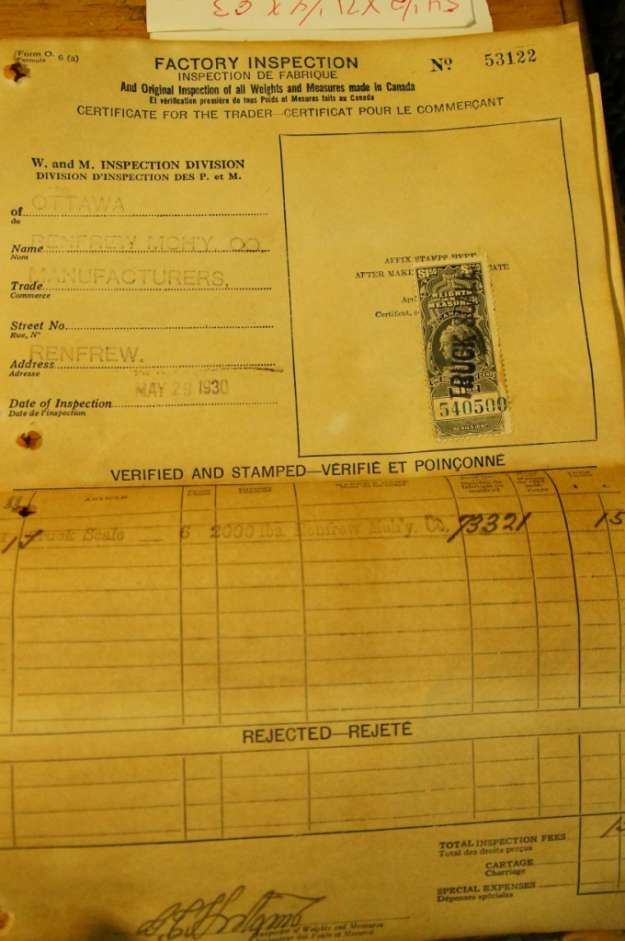 Form O. 6 (a)
Formule
FACTORY INSPECTION
INSPECTION DE FABRIQUE
Nº 53122
And Original Inspection of all Weights and Measures made in Canada
Et vérification première de tous Poids et Mesures faits au Canada
CERTIFICATE FOR THE TRADER—CERTIFICAT POUR LE COMMERÇANT
W. and M. INSPECTION DIVISION
DIVISION D'INSPECTION DES P. et M.
of OTTAWA
de
Name RENFREW MCH'Y CO.
Nom
Trade MANUFACTURERS,
Commerce
Street No.
Rue, Nº
Address RENFREW.
Adresse
MAY 29 1930
Date of Inspection
Date de l'inspection
AFFIX STAMPS HERE
AFTER MAKE
Certificat,
WEIGHTS
MEASURES
TRUCK
540500
VERIFIED AND STAMPED—VÉRIFIÉ ET POINÇONNÉ
Truck Scale 6 2000 lbs. Renfrew Mch'y. Co. 73321 15
REJECTED—REJETÉ
TOTAL INSPECTION FEES
Total des droits perçus
CARTAGE
Charriage
SPECIAL EXPENSES
Dépenses spéciales
Inspector of Weights and Measures
Inspecteur des Poids et Mesures